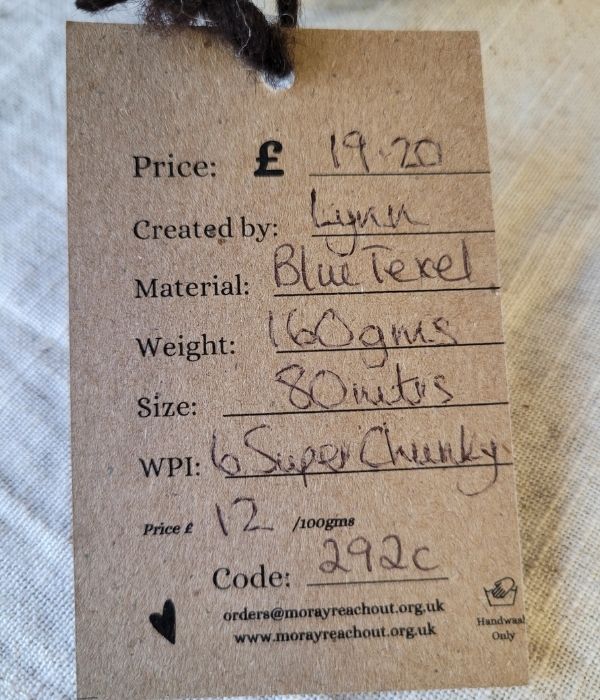 Price: £ 19.20
Created by: Lynn
Material: Blue Texel
Weight: 160gms
Size: 80mtrs
WPI: 6 Super Chunky
Price £ 12 /100gms
Code: 292c
orders@morayreachout.org.uk
www.morayreachout.org.uk
Handwash
Only